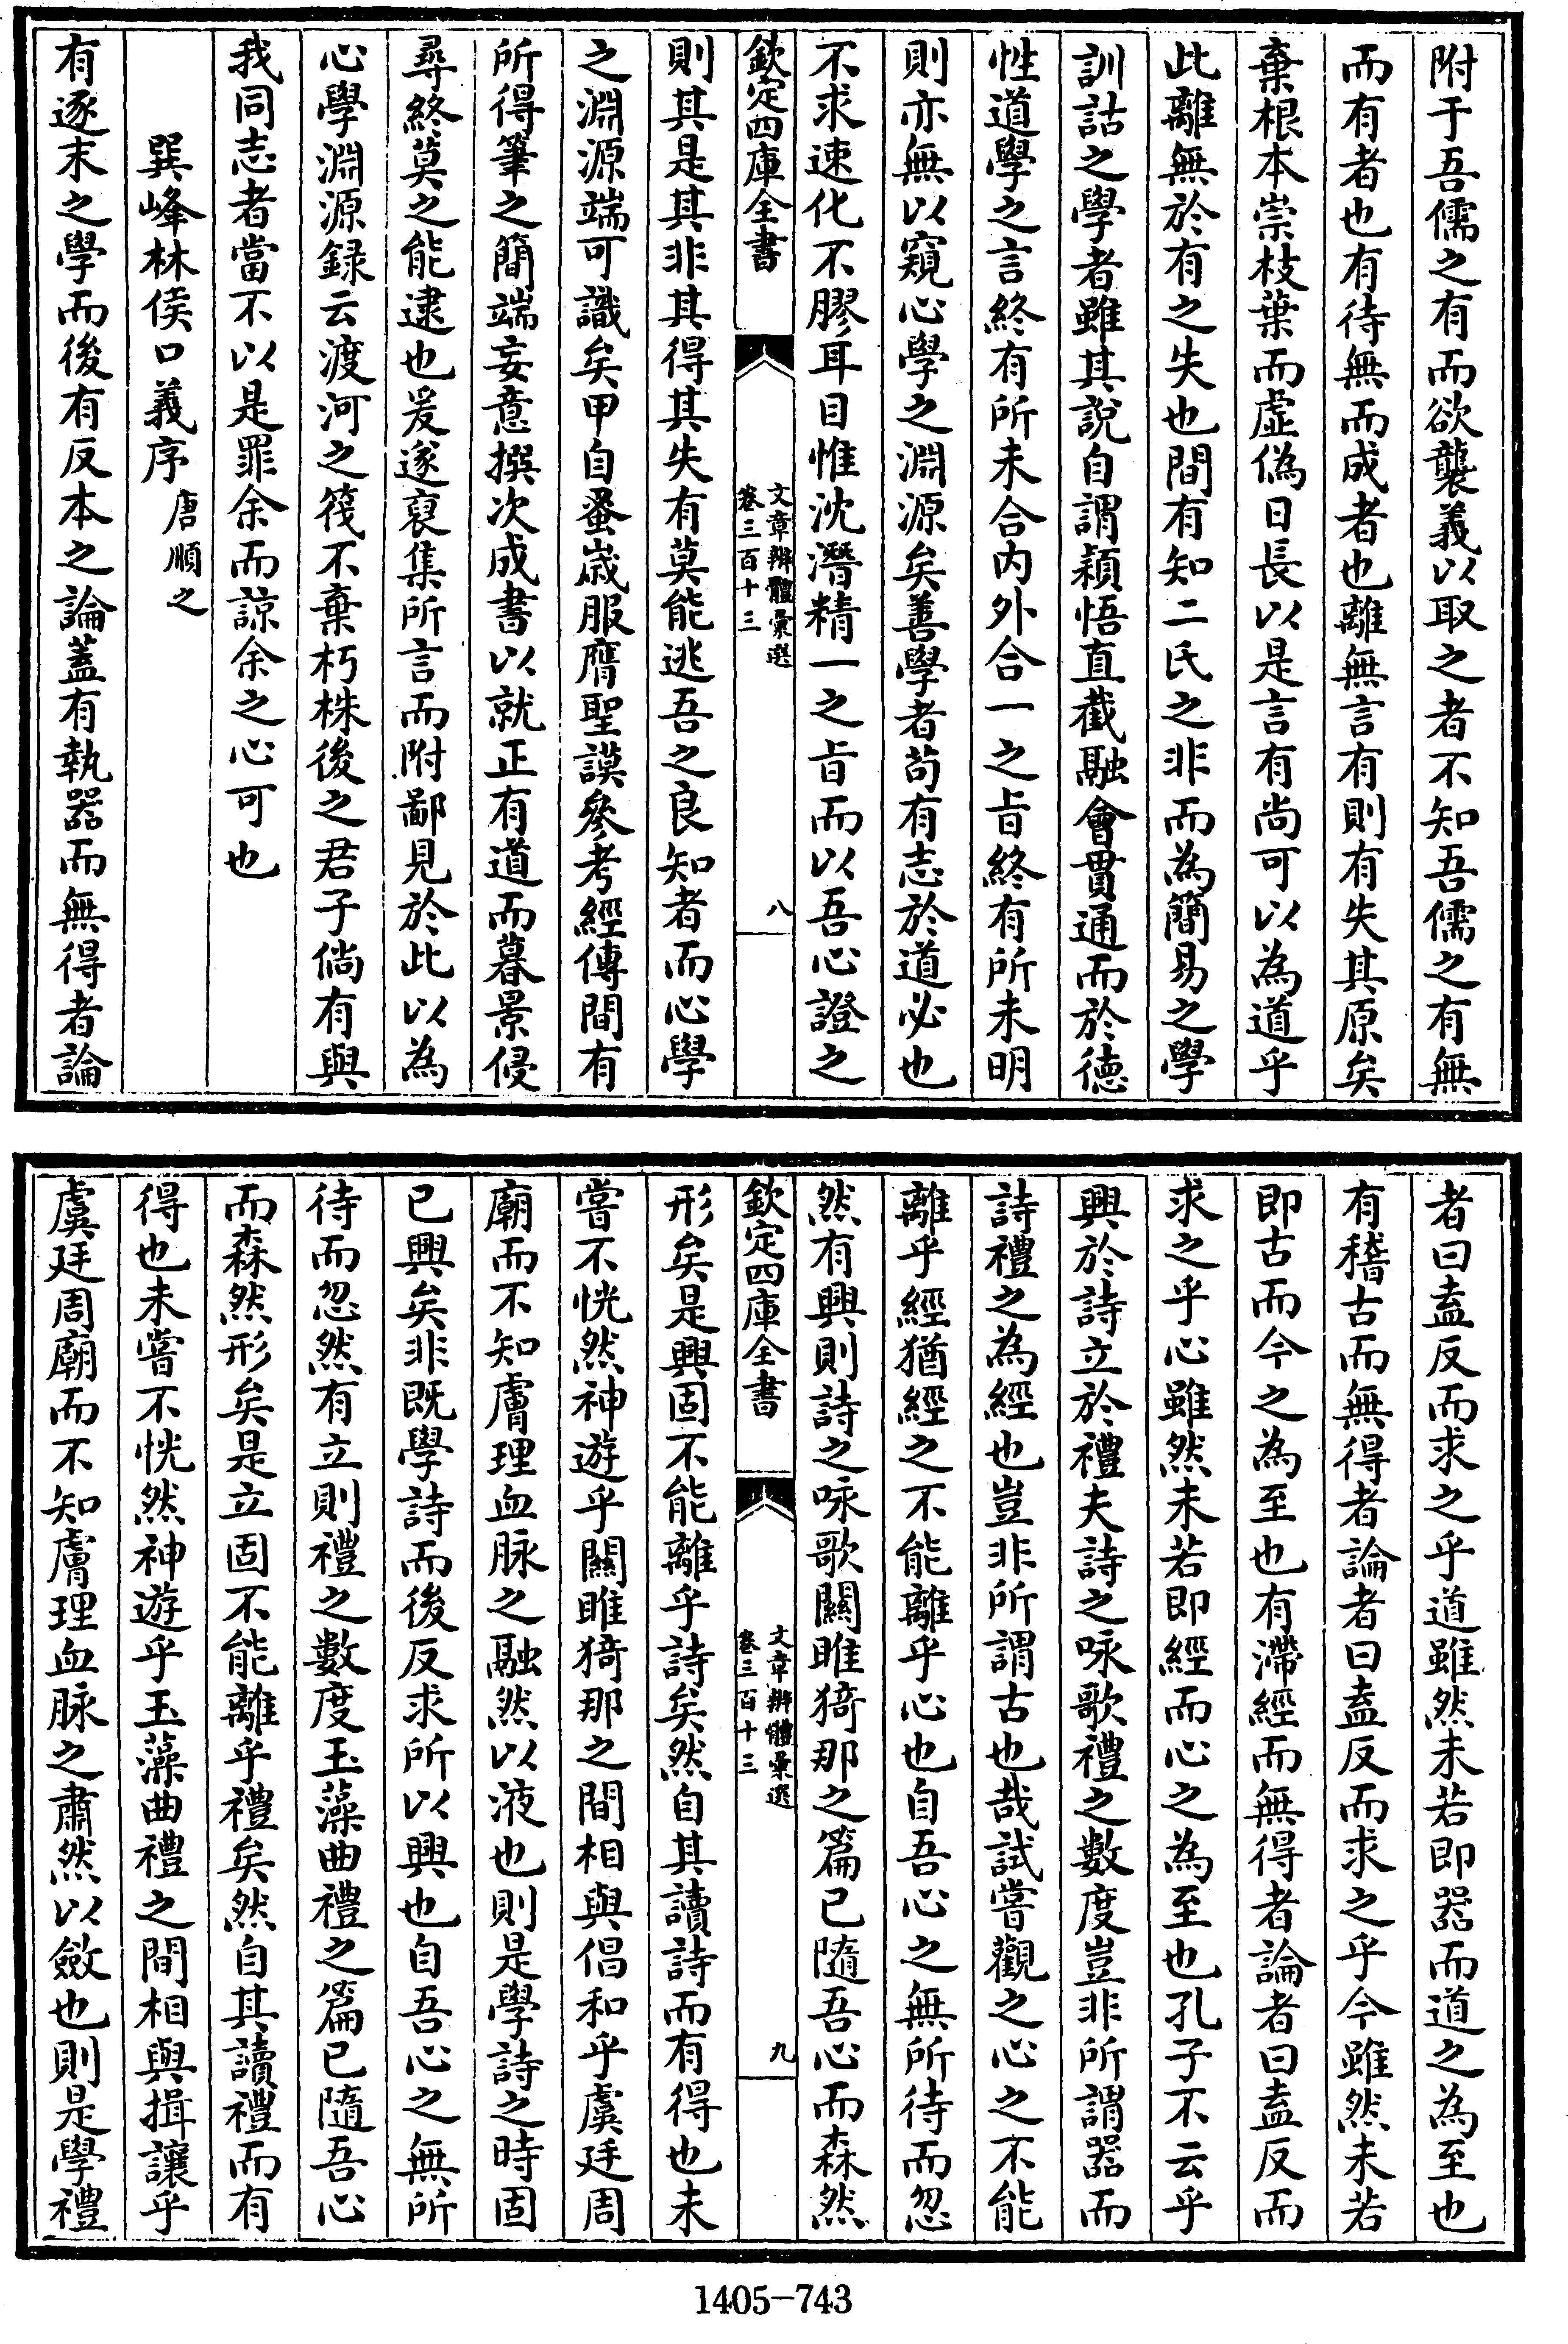 附于吾儒之有而欲襲義以取之者不知吾儒之有無
而有者也有待無而成者也離無言有則有失其原矣
棄根本崇枝葉而虛偽日長以是言有尚可以為道乎
此離無於有之失也間有知二氏之非而為簡易之學
訓詁之學者雖其說自謂穎悟直截融會貫通而於德
性道學之言終有所未合内外合一之旨終有所未明
則亦無以窺心學之淵源矣善學者苟有志於道必也
不求速化不膠耳目惟沈潛精一之旨而以吾心證之
欽定四庫全書
文章辨體彙選
卷三百十三
八
則其是其非其得其失有莫能逃吾之良知者而心學
之淵源端可識矣甲自蚤歳服膺聖謨參考經傳間有
所得筆之簡端妄意撰次成書以就正有道而暮景侵
尋終莫之能逮也爰遂裒集所言而附鄙見於此以為
心學淵源録云渡河之筏不棄朽株後之君子倘有與
我同志者當不以是罪余而諒余之心可也
巽峰林侯口義序 唐順之
有逐末之學而後有反本之論蓋有執器而無得者論
者曰盍反而求之乎道雖然未若即器而道之為至也
有稽古而無得者論者曰盍反而求之乎今雖然未若
即古而今之為至也有滯經而無得者論者曰盍反而
求之乎心雖然未若即經而心之為至也孔子不云乎
興於詩立於禮夫詩之咏歌禮之數度豈非所謂器而
詩禮之為經也豈非所謂古也哉試嘗觀之心之不能
離乎經猶經之不能離乎心也自吾心之無所待而忽
然有興則詩之咏歌關雎猗那之篇已隨吾心而森然
欽定四庫全書
文章辨體彙選
卷三百十三
九
形矣是興固不能離乎詩矣然自其讀詩而有得也未
嘗不恍然神遊乎關雎猗那之間相與倡和乎虞廷周
廟而不知膚理血脉之融然以液也則是學詩之時固
已興矣非既學詩而後反求所以興也自吾心之無所
待而忽然有立則禮之數度玉藻曲禮之篇已隨吾心
而森然形矣是立固不能離乎禮矣然自其讀禮而有
得也未嘗不恍然神遊乎玉藻曲禮之間相與揖讓乎
虞廷周廟而不知膚理血脉之肅然以斂也則是學禮
1405-743